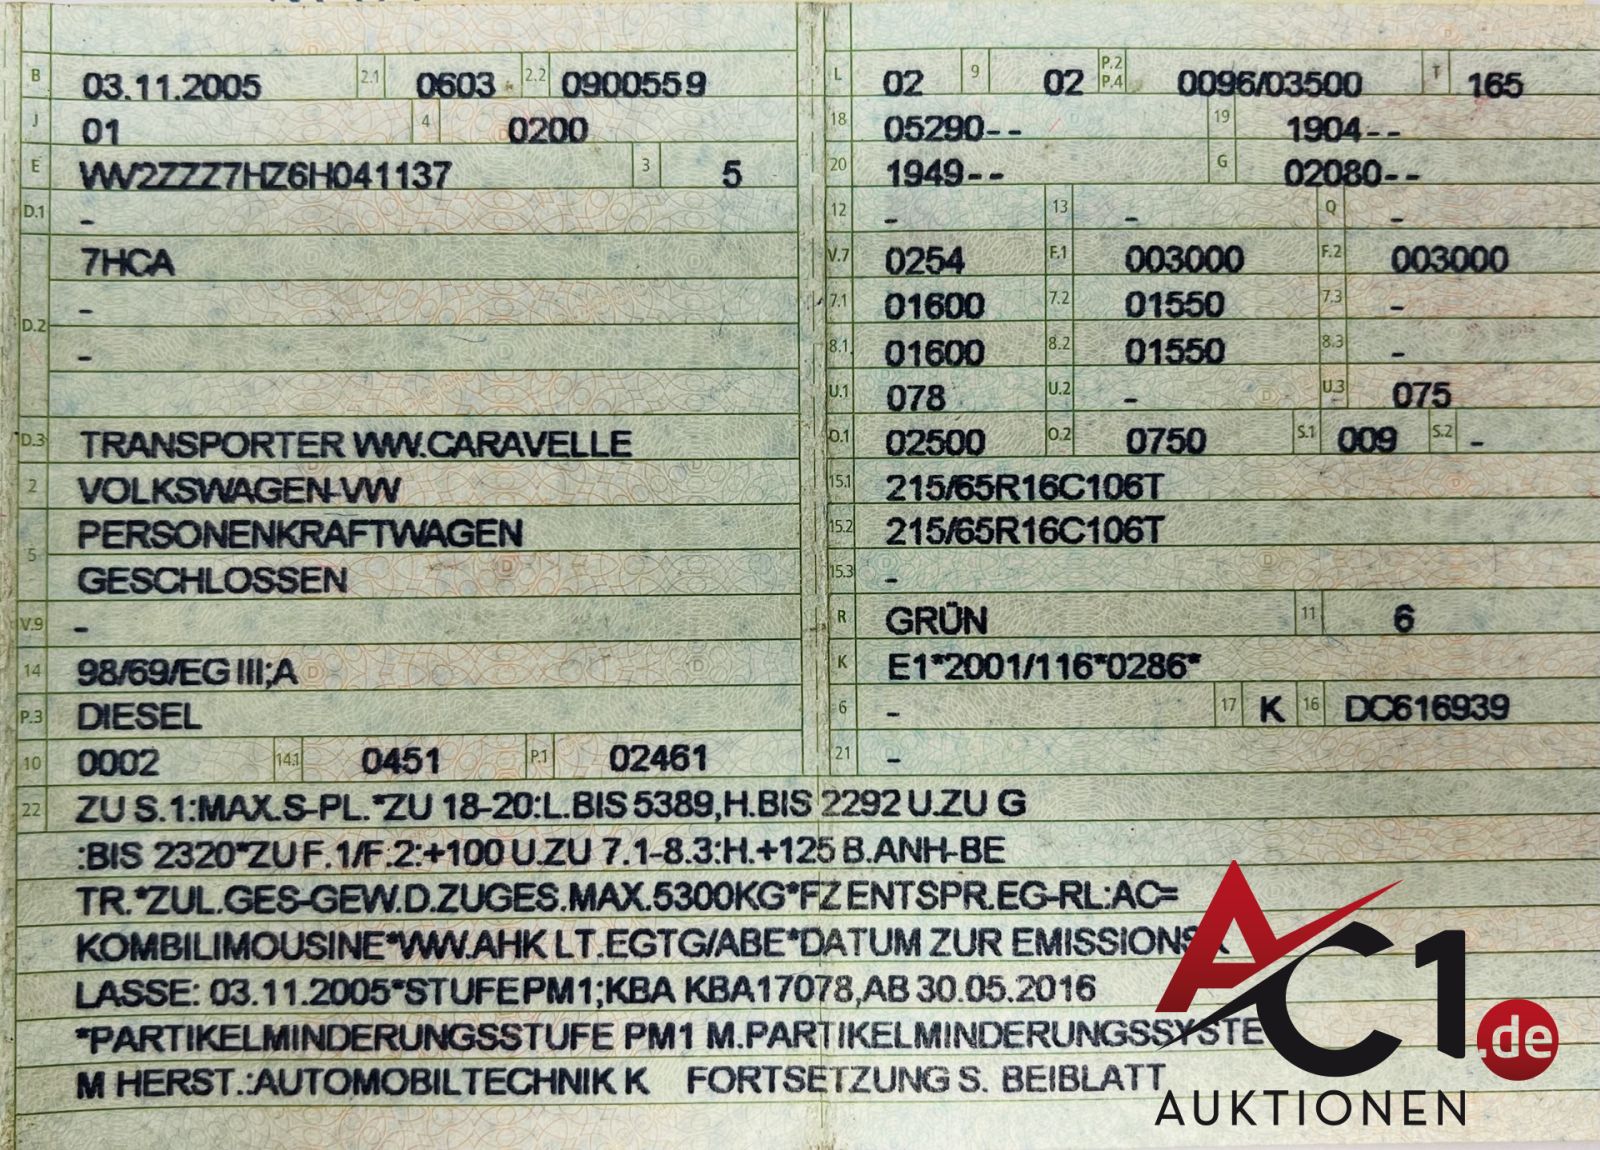 B 03.11.2005 2.1 0603 2.2 0900559
J 01 4 0200
E WV2ZZZ7HZ6H041137 3 5
D.1 -
7HCA
D.2 -
-
D.3 TRANSPORTER WW.CARAVELLE
2 VOLKSWAGEN-VW
5 PERSONENKRAFTWAGEN
GESCHLOSSEN
V.9 -
14 98/69/EG III;A
P.3 DIESEL
10 0002 14.1 0451 P.1 02461
L 02 9 02 P.2 P.4 0096/03500 T 165
18 05290-- 19 1904--
20 1949-- G 02080--
12 - 13 - Q -
V.7 0254 F.1 003000 F.2 003000
7.1 01600 7.2 01550 7.3 -
8.1 01600 8.2 01550 8.3 -
U.1 078 U.2 - U.3 075
O.1 02500 O.2 0750 S.1 009 S.2 -
15.1 215/65R16C106T
15.2 215/65R16C106T
15.3 -
R GRÜN 11 6
K E1*2001/116*0286*
6 - 17 K 16 DC616939
21 -
22 ZU S.1:MAX.S-PL.*ZU 18-20:L.BIS 5389,H.BIS 2292 U.ZU G
:BIS 2320*ZU F.1/F.2:+100 U.ZU 7.1-8.3:H.+125 B.ANH-BE
TR.*ZUL.GES-GEW.D.ZUGES.MAX.5300KG*FZ ENTSPR.EG-RL:AC=
KOMBILIMOUSINE*WW.AHK LT.EGTG/ABE*DATUM ZUR EMISSIONSK
LASSE: 03.11.2005*STUFE PM1;KBA KBA17078,AB 30.05.2016
*PARTIKELMINDERUNGSSTUFE PM1 M.PARTIKELMINDERUNGSSYSTE
M HERST.:AUTOMOBILTECHNIK K FORTSETZUNG S. BEIBLATT
AC1.de
AUKTIONEN